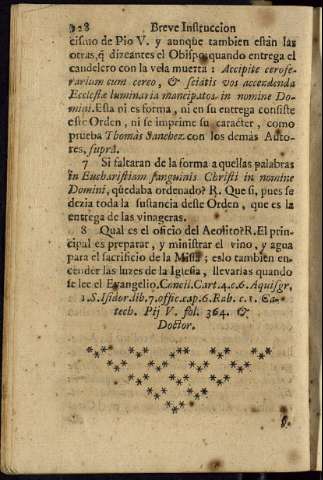 128 Breve Instruccion
cismo de Pio V. y aunque tambien están las
otras, q̃ dize antes el Obispo, quando entrega el
candelero con la vela muerta: Accipite cerofe-
rarium cum cereo, & sciatis vos accendenda
Ecclesiæ luminaria mancipatos in nomine Do-
mini. Esta ni es forma, ni en su entrega consiste
este Orden, ni se imprime su caracter, como
prueba Thomàs Sanchez con los demàs Auto-
res, suprà.
7 Si faltaran de la forma aquellas palabras
in Eucharistiam sanguinis Christi in nomine
Domini, quedaba ordenado? R. Que si, pues se
dezia toda la sustancia deste Orden, que es la
entrega de las vinageras.
8 Qual es el oficio del Acolito? R. El prin-
cipal es preparar, y ministrar el vino, y agua
para el sacrificio de la Missa; eslo tambien en-
cender las luzes de la Iglesia, llevarlas quando
se lee el Evangelio. Concil. Cart. 4. c. 6. Aquisgr.
1. S. Isidor. lib. 7. offic. cap. 6. Rab. c. 1. Ca-
tech. Pij V. fol. 364. &
Doctor.